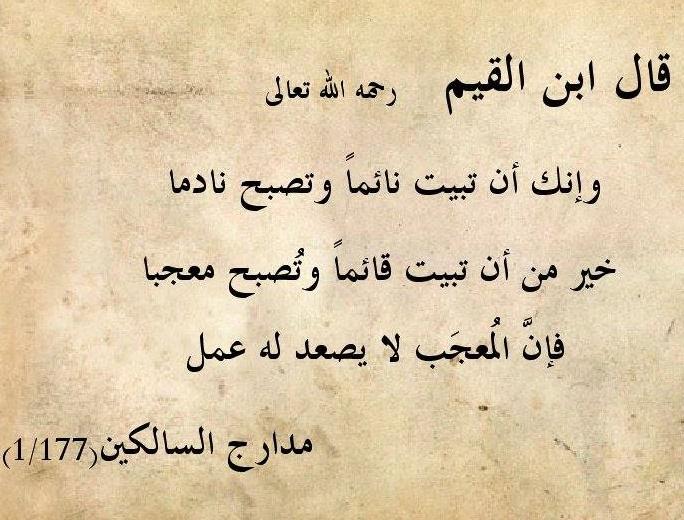 قال ابن القيم رحمه الله تعالى
وإنك أن تبيت نائماً وتصبح نادما
خير من أن تبيت قائماً وتُصبح معجبا
فإنَّ المُعجَب لا يصعد له عمل
مدارج السالكين(1/177)